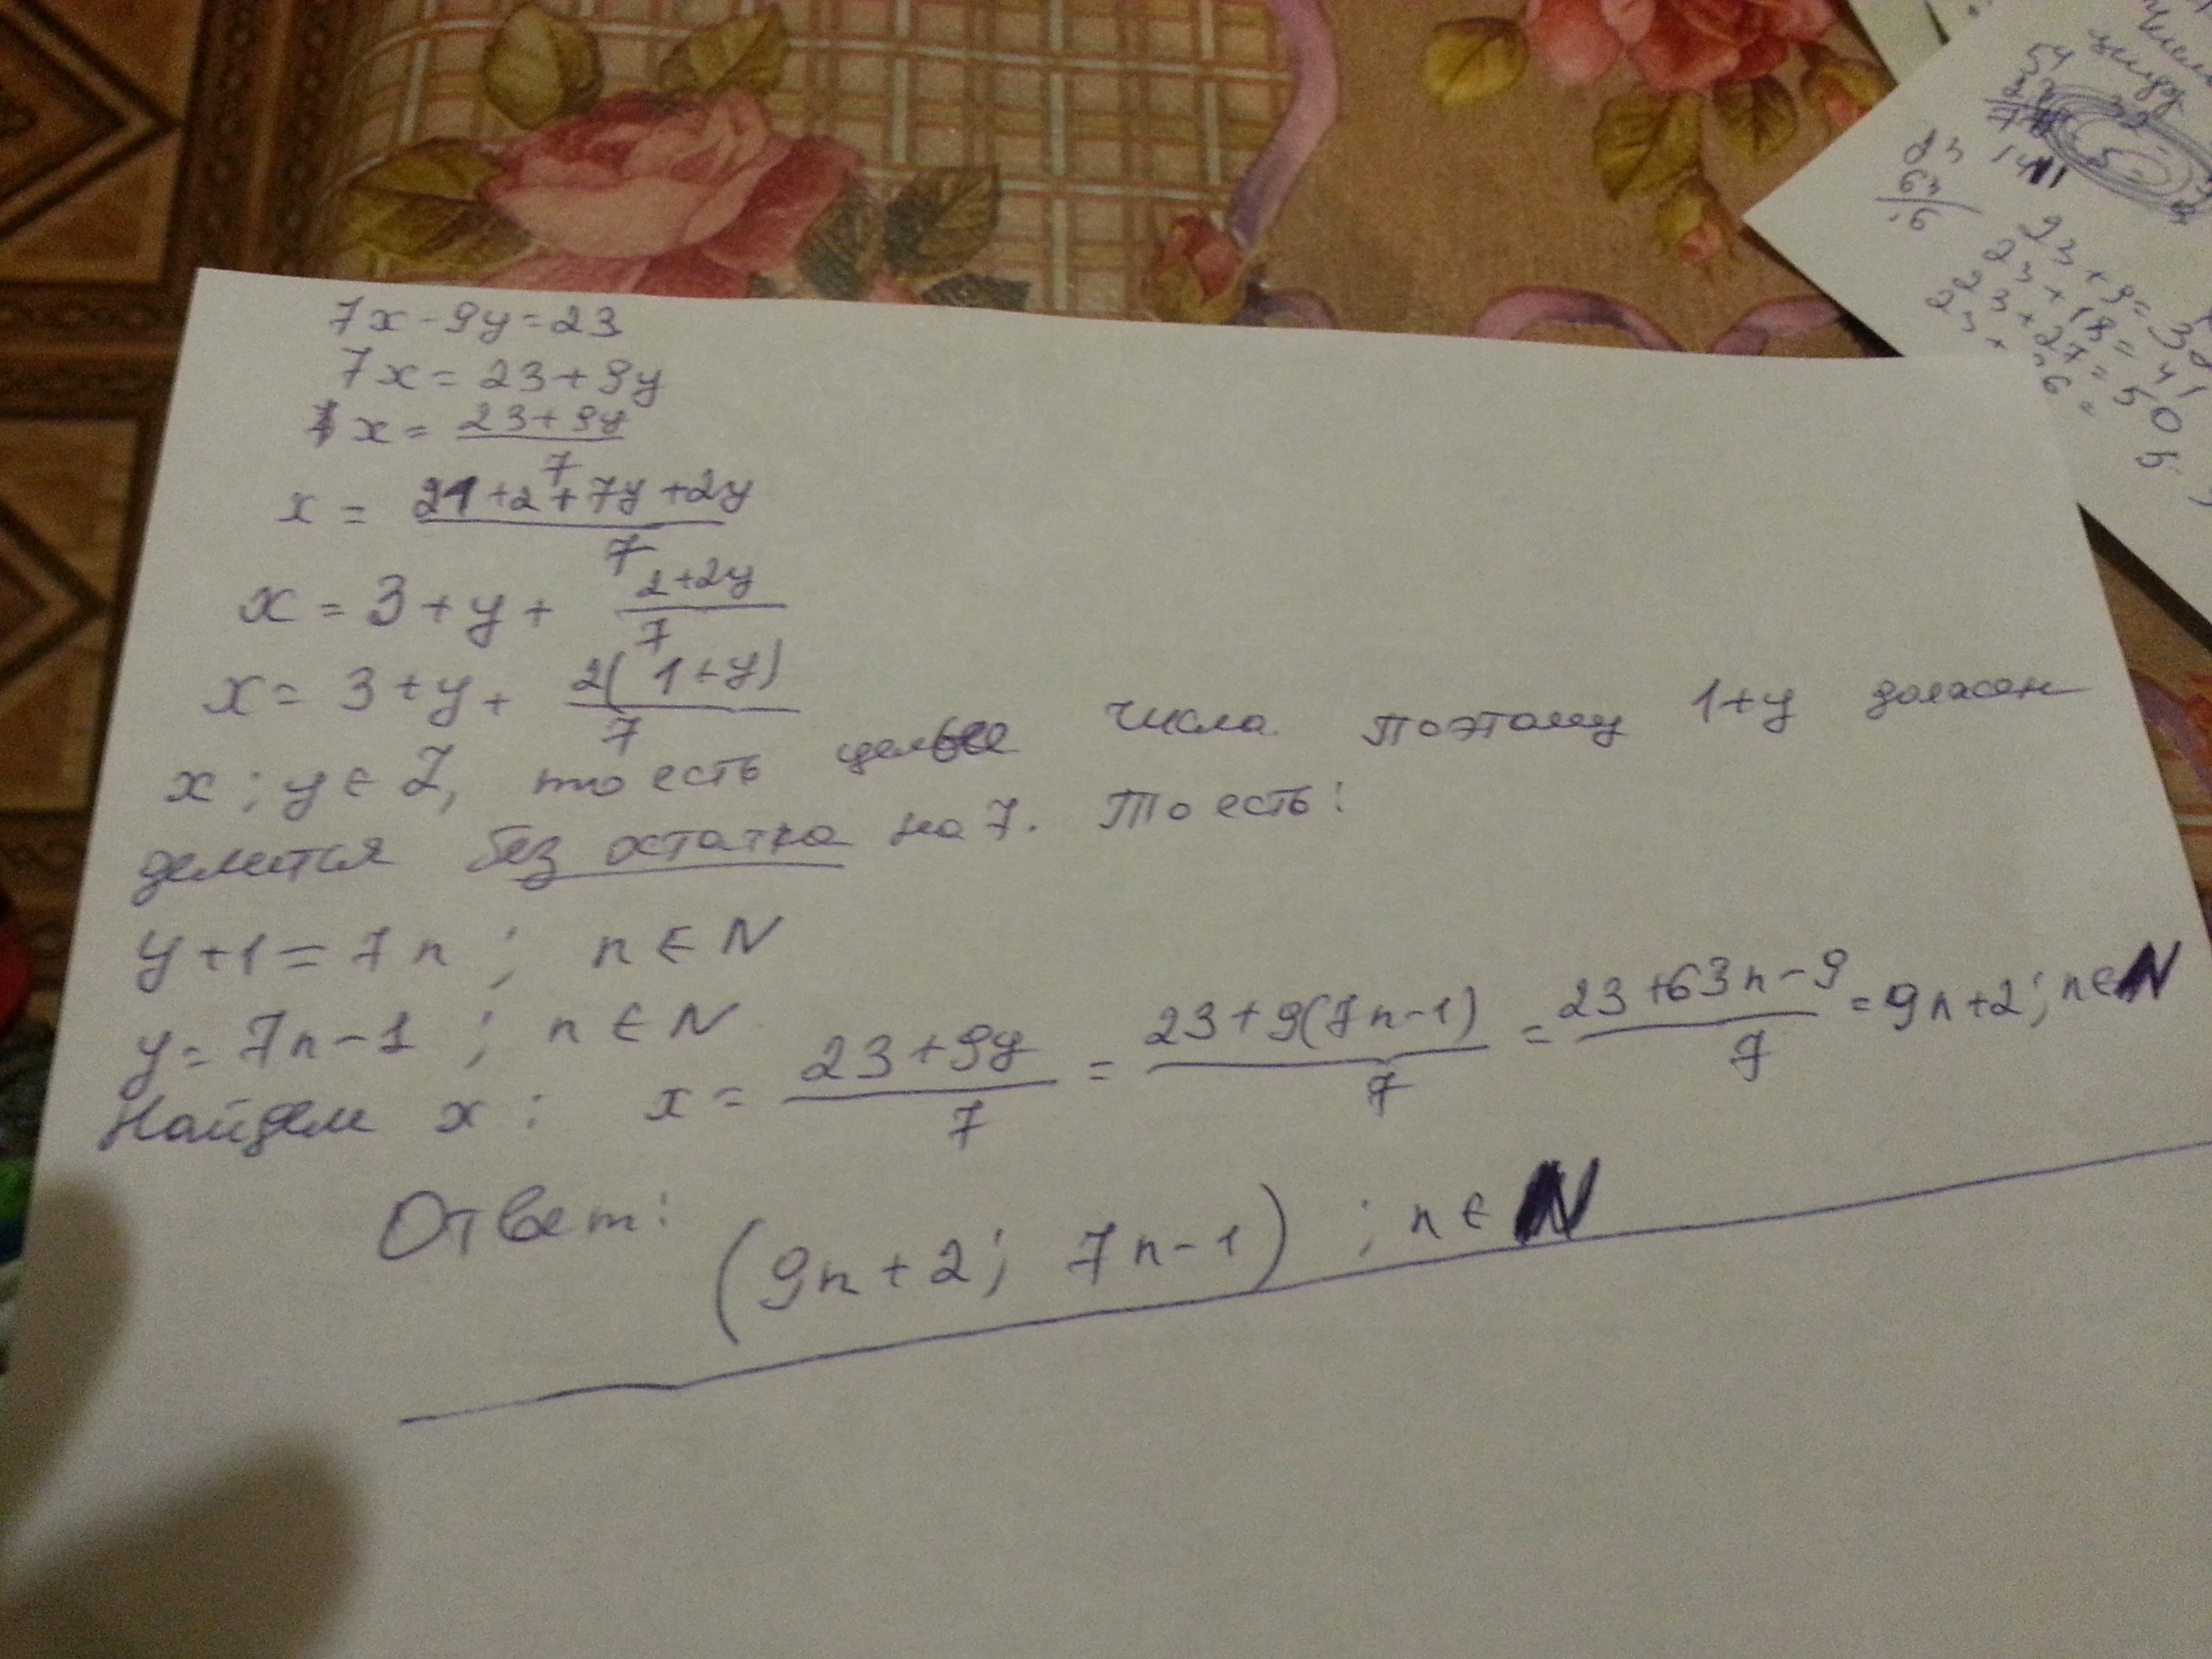 7x-9y=23
7x=23+9y
x= 23+9y / 7
x = 21+2+7y+2y / 7
x = 3+y+ 2+2y / 7
x = 3+y+ 2(1+y) / 7
x; y ∈ Z, то есть целые числа поэтому 1+y должен
делится без остатка на 7. То есть:
y+1=7n ; n ∈ N
y= 7n-1 ; n ∈ N
Найдем x: x = 23+9y / 7 = 23+9(7n-1) / 7 = 23+63n-9 / 7 = 9n+2; n∈N
Ответ: (9n+2; 7n-1) ; n ∈ N
54
23
63
23+9=
23+18= 41
23+27=50